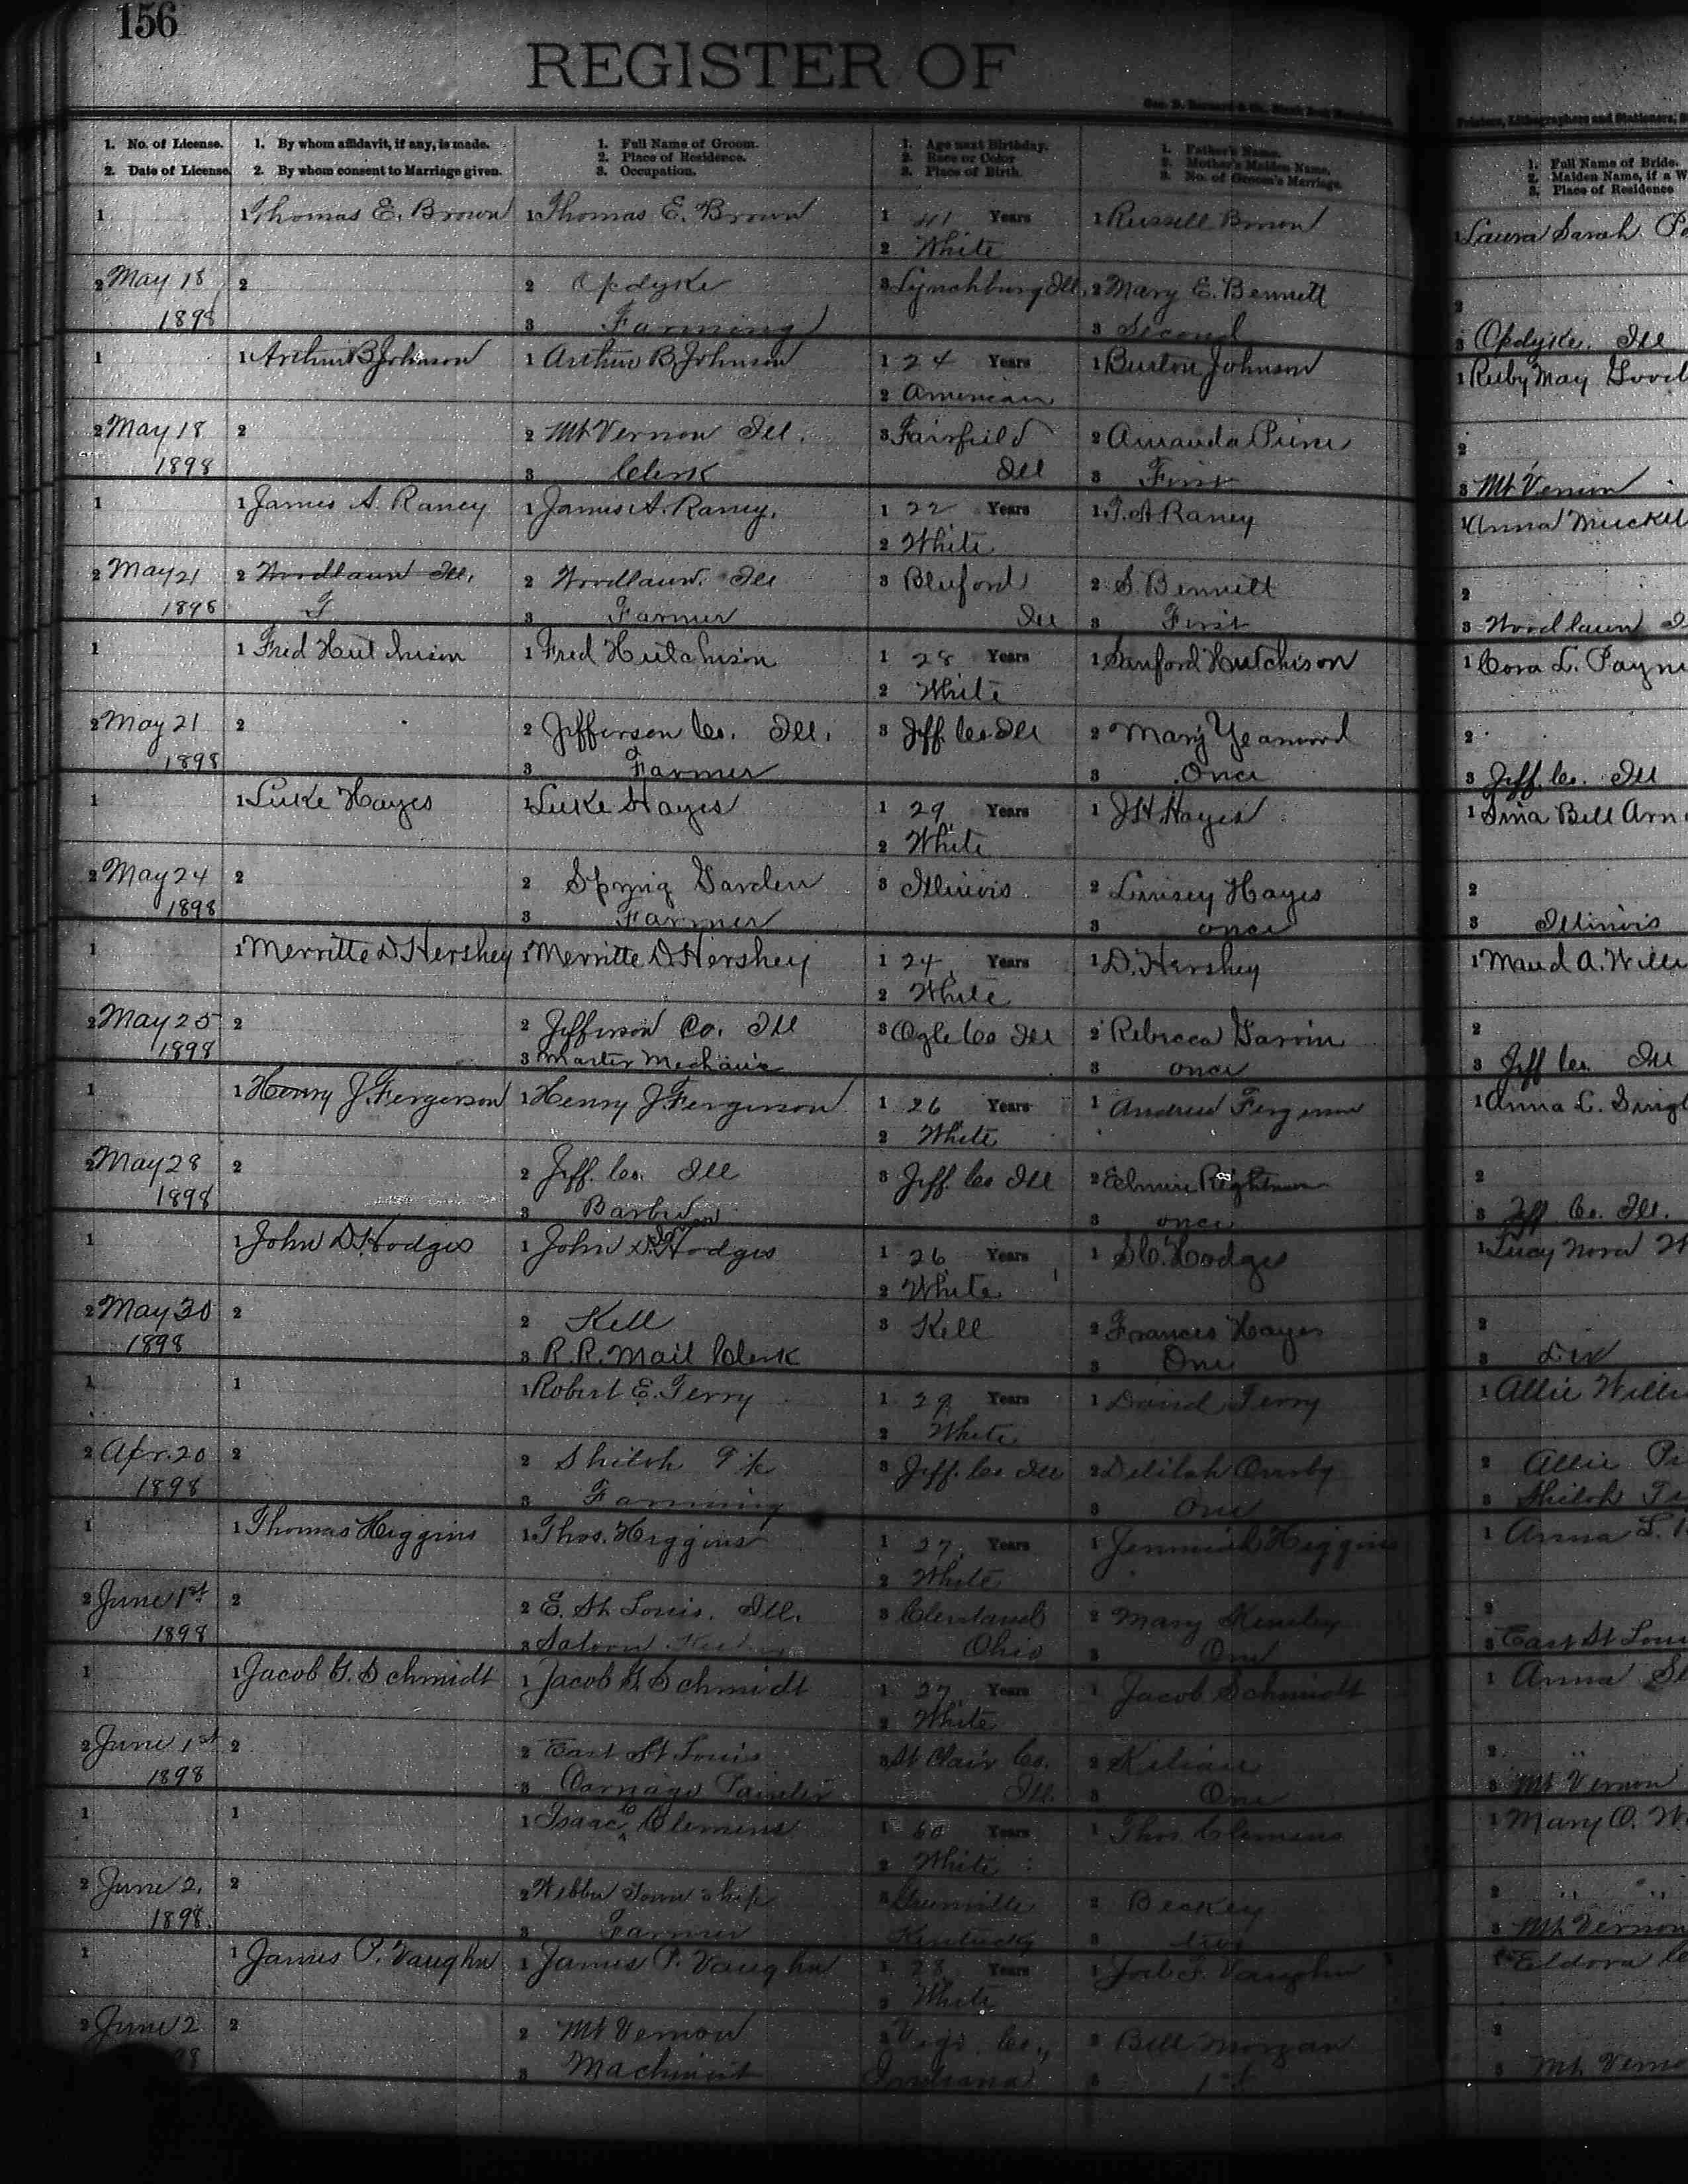 156
REGISTER OF
1. No. of License.
2. Date of License.
1. By whom affidavit, if any, is made.
2. By whom consent to Marriage given.
1. Full Name of Groom.
2. Place of Residence.
3. Occupation.
1. Age next Birthday.
2. Race or Color
3. Place of Birth.
1. Father's Name.
2. Mother's Maiden Name.
3. No. of Groom's Marriage.
1. Full Name of Bride.
2. Maiden Name, if a W
3. Place of Residence
1 1 Thomas E. Brown 1 Thomas E. Brown 1 41 Years 1 Russell Brown 1 Laura Sarah
2 White
2 May 18 2 2 Opdyke 3 Lynchburg Ill. 2 Mary E. Bennett 2
1898 3 Farming 3 Second 3 Opdyke. Ill
1 1 Arthur B Johnson 1 Arthur B Johnson 1 24 Years 1 Burton Johnson 1 Ruby May
2 American
2 May 18 2 2 Mt Vernon Ill. 3 Fairfield 2 Amanda 2
1898 3 Clerk Ill 3 First 3 Mt Vernon
1 1 James A. Raney 1 James A. Raney. 1 22 Years 1 Raney 1 Anna
2 White
2 May 21 2 Woodlawn Ill. 2 Woodlawn. Ill 3 Bluford 2 S. Bennett 2
1898 3 Farmer Ill 3 First 3 Woodlawn
1 1 Fred Hutchison 1 Fred Hutchison 1 28 Years 1 Sanford Hutchison 1 Cora L. Payn
2 White
2 May 21 2 2 Jefferson Co. Ill. 3 Jeff. Co. Ill 2 Mary 2
1898 3 Farmer 3 Once 3 Jeff. Co. Ill
1 1 Luke Hayes 1 Luke Hayes 1 29 Years 1 J H Hayes 1 Bell Arn
2 White
2 May 24 2 2 Spring Garden 3 Illinois 2 Linsey Hayes 2
1898 3 Farmer 3 once 3 Illinois
1 1 Merritte D Hershey 1 Merritte D Hershey 1 24 Years 1 D. Hershey 1 Maud A.
2 White
2 May 25 2 2 Jefferson Co. Ill 3 Ogle Co Ill 2 Rebecca Garvin 2
1898 3 Master Mechanic 3 once 3 Jeff Co. Ill
1 1 Henry J. Fergerson 1 Henry J Fergerson 1 26 Years 1 Andrew Fergerson 1 Anna
2 White
2 May 28 2 2 Jeff. Co. Ill 3 Jeff Co Ill 2 2
1898 3 Barber 3 once 3 Jeff Co. Ill.
1 1 John D. Hodges 1 John D. Hodges 1 26 Years 1 Hodges 1 Lucy Nora W
2 White
2 May 30 2 2 Kell 3 Kell 2 Frances Hayes 2
1898 3 R.R. Mail Clerk 3 One 3 Dix
1 1 1 Robert E. Terry 1 29 Years 1 David Terry 1 Allie
2 White
2 Apr. 20 2 2 Shiloh 3 Jeff. Co Ill 2 Delilah 2 Allie
1898 3 Farming 3 One 3 Shiloh
1 1 Thomas Higgins 1 Thos. Higgins 1 27 Years 1 Jeremiah Higgins 1 Anna L.
2 White
2 June 1st 2 2 E. St. Louis. Ill. 3 Cleveland 2 Mary 2
1898 3 Saloon Ohio 3 One 3 East St Loui
1 1 Jacob G. Schmidt 1 Jacob G. Schmidt 1 27 Years 1 Jacob Schmidt 1 Anna
2 White
2 June 1st 2 2 East St Louis 3 St Clair Co. 2 Kilian 2
1898 3 Carriage Painter Ill. 3 One 3 Mt Vernon
1 1 1 Isaac C Clemens 1 60 Years 1 Thos. Clemens 1 Mary O. W
2 White
2 June 2. 2 2 Webber Township 3 Greenville 2 Beckey 2
1898. 3 Farmer Kentucky 3 two 3 Mt. Vernon
1 1 James P. Vaughn 1 James P. Vaughn 1 28 Years 1 Vaughn 1 Eldora
2 White
2 June 2 2 2 Mt Vernon 3 Vigo Co., 2 Bell Morgan 2
98 3 Machinist Indiana 3 1st 3 Mt. Verno